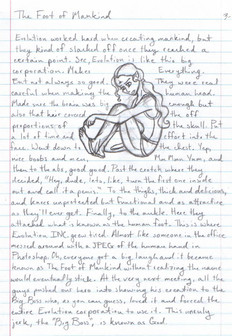 The Foot of Mankind
Evolution worked hard when creating mankind, but
they kind of slacked off once they reached a
certain point. See, Evolution is like this big
corporation. Makes Everything.
But not always so good. They were real
careful when making the human head.
Made sure the brain was big enough but
also that hair covered the off
proportions of the skull. Put
a lot of time and effort into the
face. Went down to the chest. Yep,
nice boobs and
then to the abs, good good. Past the crotch where they
decided, "Hey, dude, lets, like, turn the first one inside
out and call it a penis." To the thighs, thick and delicious,
and leaves unprotected but functional and as attractive
as they'll ever get. Finally, to the ankle. Here they
attached what is known as the human foot. This is where
Evolution, INC. grew tired. Almost like someone in the office
messed around with a JPEG of the human hand in
Photoshop. Everyone got a big laugh and it became
known as The Foot of Mankind, without realizing the name
would eventually stick. At the very next meeting, all the
guys pushed out into showing his creation to the
Big Boss who, as you can guess, loved it and forced the
entire Evolution corporation to use it. This unruly
jerk, the 'Big Boss', is known as God.